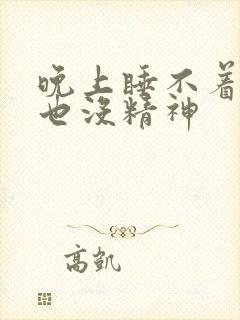 晚上睡不着
也没精神
高凯